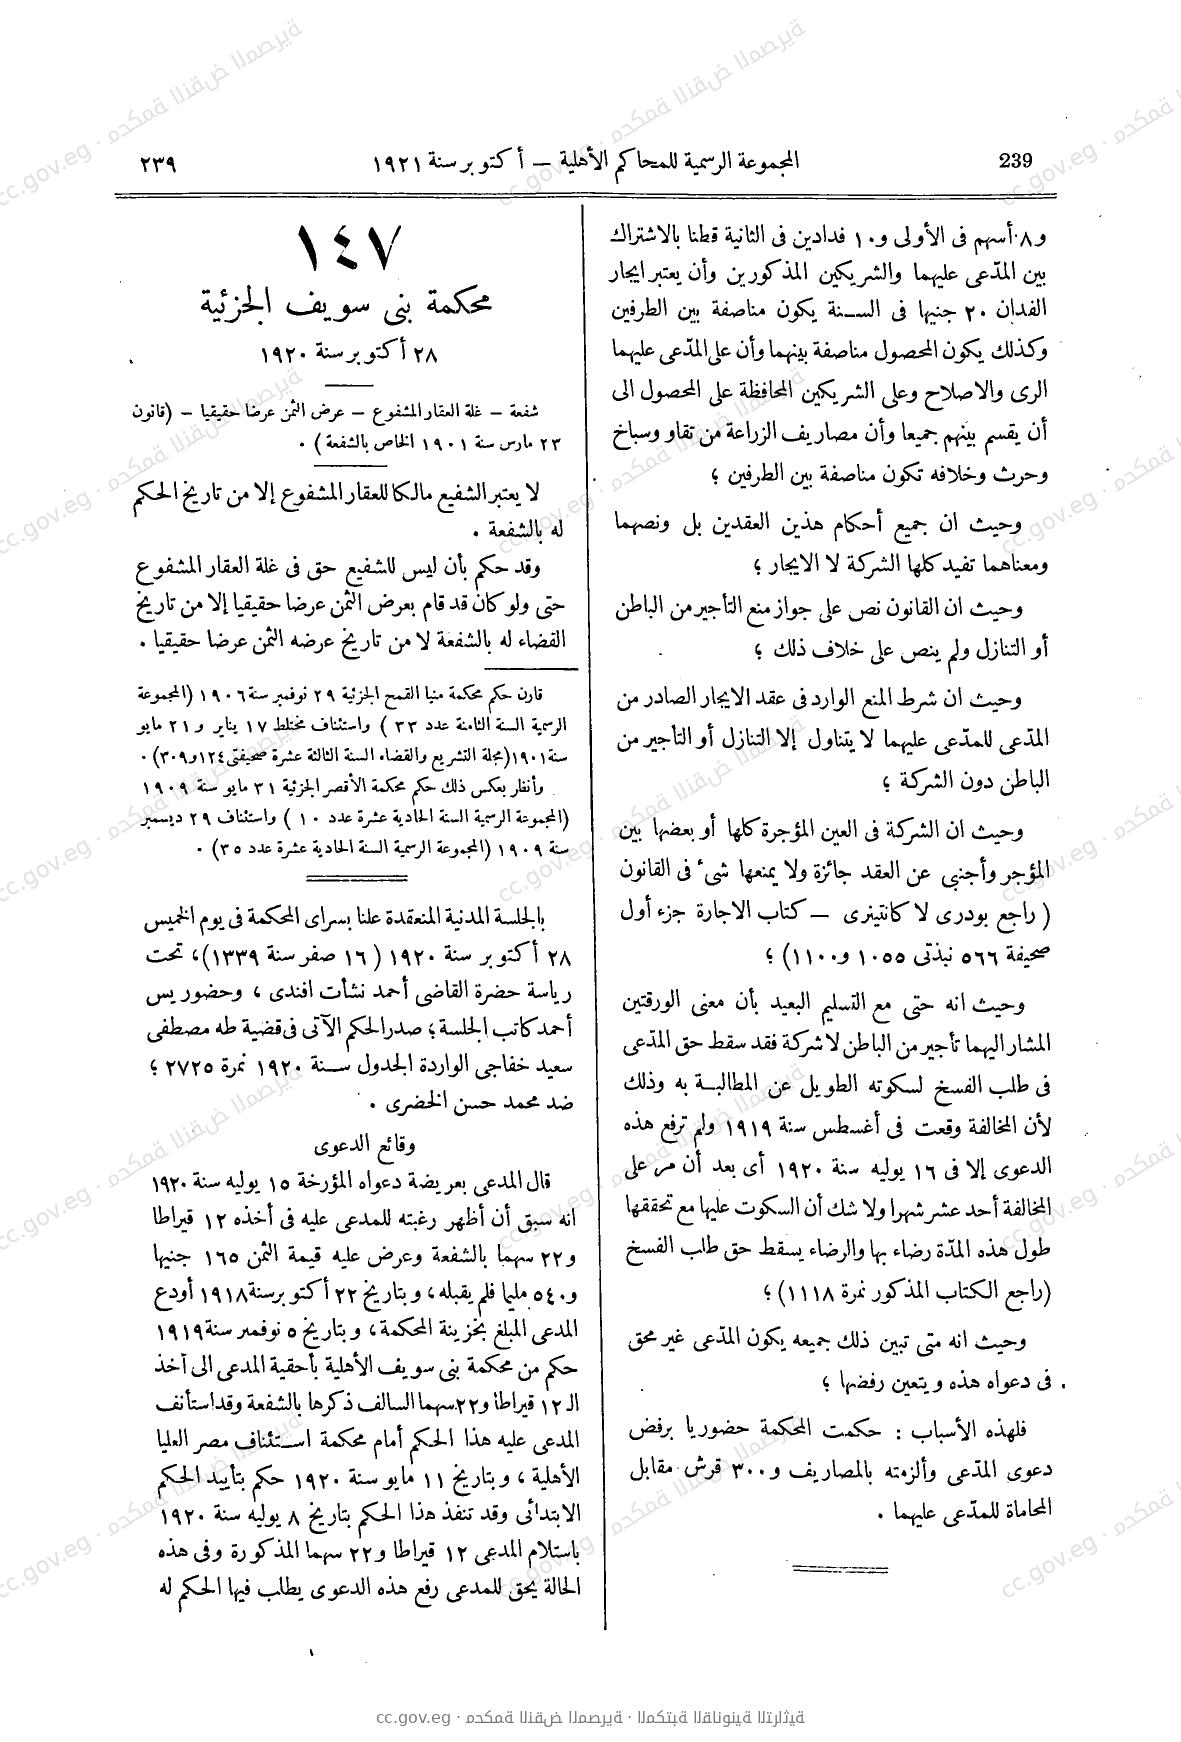 239
المجموعة الرسمية للمحاكم الأهلية — أكتوبر سنة ١٩٢١
٢٣٩
و٨ أسهم فى الأولى و١٠ فدادين فى الثانية قطنا بالاشتراك
بين المدّعى عليهما والشريكين المذكورين وأن يعتبر ايجار
الفدان ٢٠ جنيها فى الســنة يكون مناصفة بين الطرفين
وكذلك يكون المحصول مناصفة بينهما وأن على المدّعى عليهما
الرى والاصلاح وعلى الشريكين المحافظة على المحصول الى
أن يقسم بينهم جميعا وأن مصاريف الزراعة من تقاو وسباخ
وحرث وخلافه تكون مناصفة بين الطرفين ؛
وحيث ان جميع أحكام هذين العقدين بل ونصهما
ومعناهما تفيد كلها الشركة لا الايجار ؛
وحيث ان القانون نص على جواز منع التأجير من الباطن
أو التنازل ولم ينص على خلاف ذلك ؛
وحيث ان شرط المنع الوارد فى عقد الايجار الصادر من
المدّعى للمدّعى عليهما لا يتناول إلا التنازل أو التأجير من
الباطن دون الشركة ؛
وحيث ان الشركة فى العين المؤجرة كلها أو بعضها بين
المؤجر وأجنبى عن العقد جائزة ولا يمنعها شىء فى القانون
( راجع بودرى لا كانتينرى — كتاب الاجارة جزء أول
صحيفة ٥٦٦ نبذتى ١٠٥٥ و١١٠٠) ؛
وحيث انه حتى مع التسليم البعيد بأن معنى الورقتين
المشار اليهما تأجير من الباطن لا شركة فقد سقط حق المدّعى
فى طلب الفسخ لسكوته الطويل عن المطالبــة به وذلك
لأن المخالفة وقعت فى أغسطس سنة ١٩١٩ ولم ترفع هذه
الدعوى إلا فى ١٦ يوليه سنة ١٩٢٠ أى بعد أن مر على
المخالفة أحد عشر شهرا ولا شك أن السكوت عليها مع تحققها
طول هذه المدّة رضاء بها والرضاء يسقط حق طلب الفسخ
(راجع الكتاب المذكور نمرة ١١١٨) ؛
وحيث انه متى تبين ذلك جميعه يكون المدّعى غير محق
فى دعواه هذه ويتعين رفضها ؛
فلهذه الأسباب : حكمت المحكمة حضوريا برفض
دعوى المدّعى وألزمته بالمصاريف و٣٠٠ قرش مقابل
المحاماة للمدّعى عليهما .
١٤٧
محكمة بنى سويف الجزئية
٢٨ أكتوبر سنة ١٩٢٠
شفعة — غلة العقار المشفوع — عرض الثمن عرضا حقيقيا — (قانون
٢٣ مارس سنة ١٩٠١ الخاص بالشفعة) .
لا يعتبر الشفيع مالكا للعقار المشفوع إلا من تاريخ الحكم
له بالشفعة .
وقد حكم بأن ليس للشفيع حق فى غلة العقار المشفوع
حتى ولو كان قد قام بعرض الثمن عرضا حقيقيا إلا من تاريخ
القضاء له بالشفعة لا من تاريخ عرضه الثمن عرضا حقيقيا .
قارن حكم محكمة منيا القمح الجزئية ٢٩ نوفمبر سنة ١٩٠٦ (المجموعة
الرسمية السنة الثامنة عدد ٣٣ ) واستئناف مختلط ١٧ يناير و ٢١ مايو
سنة ١٩٠١ (مجلة التشريع والقضاء السنة الثالثة عشرة صحيفتى ١٢٤ و٣٠٩) .
وأنظر بعكس ذلك حكم محكمة الأقصر الجزئية ٣١ مايو سنة ١٩٠٩
(المجموعة الرسمية السنة الحادية عشرة عدد ١٠ ) واستئناف ٢٩ ديسمبر
سنة ١٩٠٩ (المجموعة الرسمية السنة الحادية عشرة عدد ٣٥) .
بالجلسة المدنية المنعقدة علنا بسراى المحكمة فى يوم الخميس
٢٨ أكتوبر سنة ١٩٢٠ (١٦ صفر سنة ١٣٣٩)، تحت
رياسة حضرة القاضى أحمد نشأت افندى ، وحضور يس
أحمد كاتب الجلسة ؛ صدر الحكم الآتى فى قضية طه مصطفى
سعيد خفاجى الواردة الجدول ســنة ١٩٢٠ نمرة ٢٧٢٥ ؛
ضد محمد حسن الخضرى .
وقائع الدعوى
قال المدعى بعريضة دعواه المؤرخة ١٥ يوليه سنة ١٩٢٠
انه سبق أن أظهر رغبته للمدعى عليه فى أخذه ١٢ قيراطا
و٢٢ سهما بالشفعة وعرض عليه قيمة الثمن ١٦٥ جنيها
و٥٤٠ مليما فلم يقبله ، وبتاريخ ٢٢ أكتوبر سنة ١٩١٨ أودع
المدعى المبلغ بخزينة المحكمة ، وبتاريخ ٥ نوفمبر سنة ١٩١٩
حكم من محكمة بنى سويف الأهلية بأحقية المدعى الى أخذ
الـ ١٢ قيراطا و٢٢سهما السالف ذكرها بالشفعة وقد استأنف
المدعى عليه هذا الحكم أمام محكمة اســتئناف مصر العليا
الأهلية ، وبتاريخ ١١ مايو سنة ١٩٢٠ حكم بتأييد الحكم
الابتدائى وقد تنفذ هذا الحكم بتاريخ ٨ يوليه سنة ١٩٢٠
باستلام المدعى ١٢ قيراطا و٢٢ سهما المذكورة وفى هذه
الحالة يحق للمدعى رفع هذه الدعوى يطلب فيها الحكم له
cc.gov.eg · محكمة النقض المصرية · المكتبة القانونية التراثية